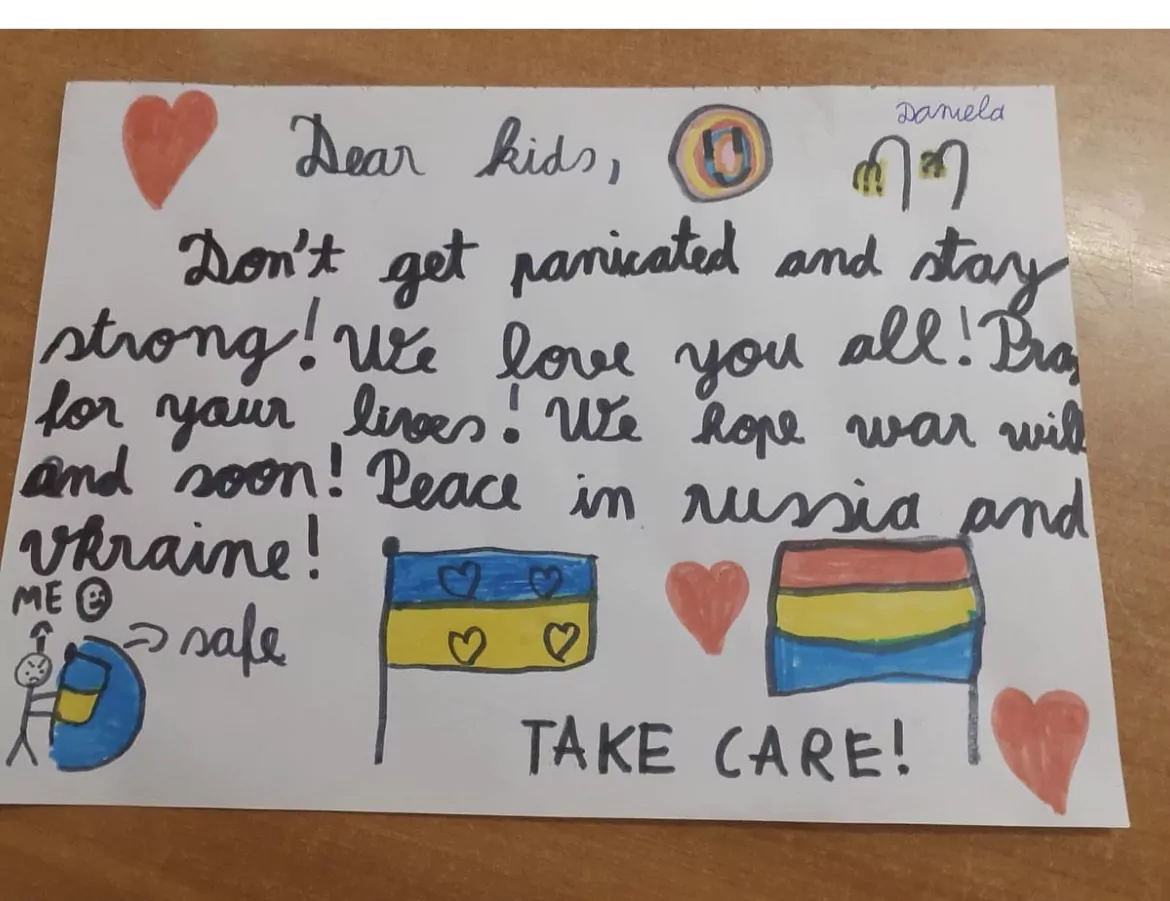 Daniela
Dear kids,
Don't get panicated and stay
strong! We love you all! Pray
for your lives! We hope war will
and soon! Peace in russia and
Ukraine!
ME
safe
TAKE CARE!